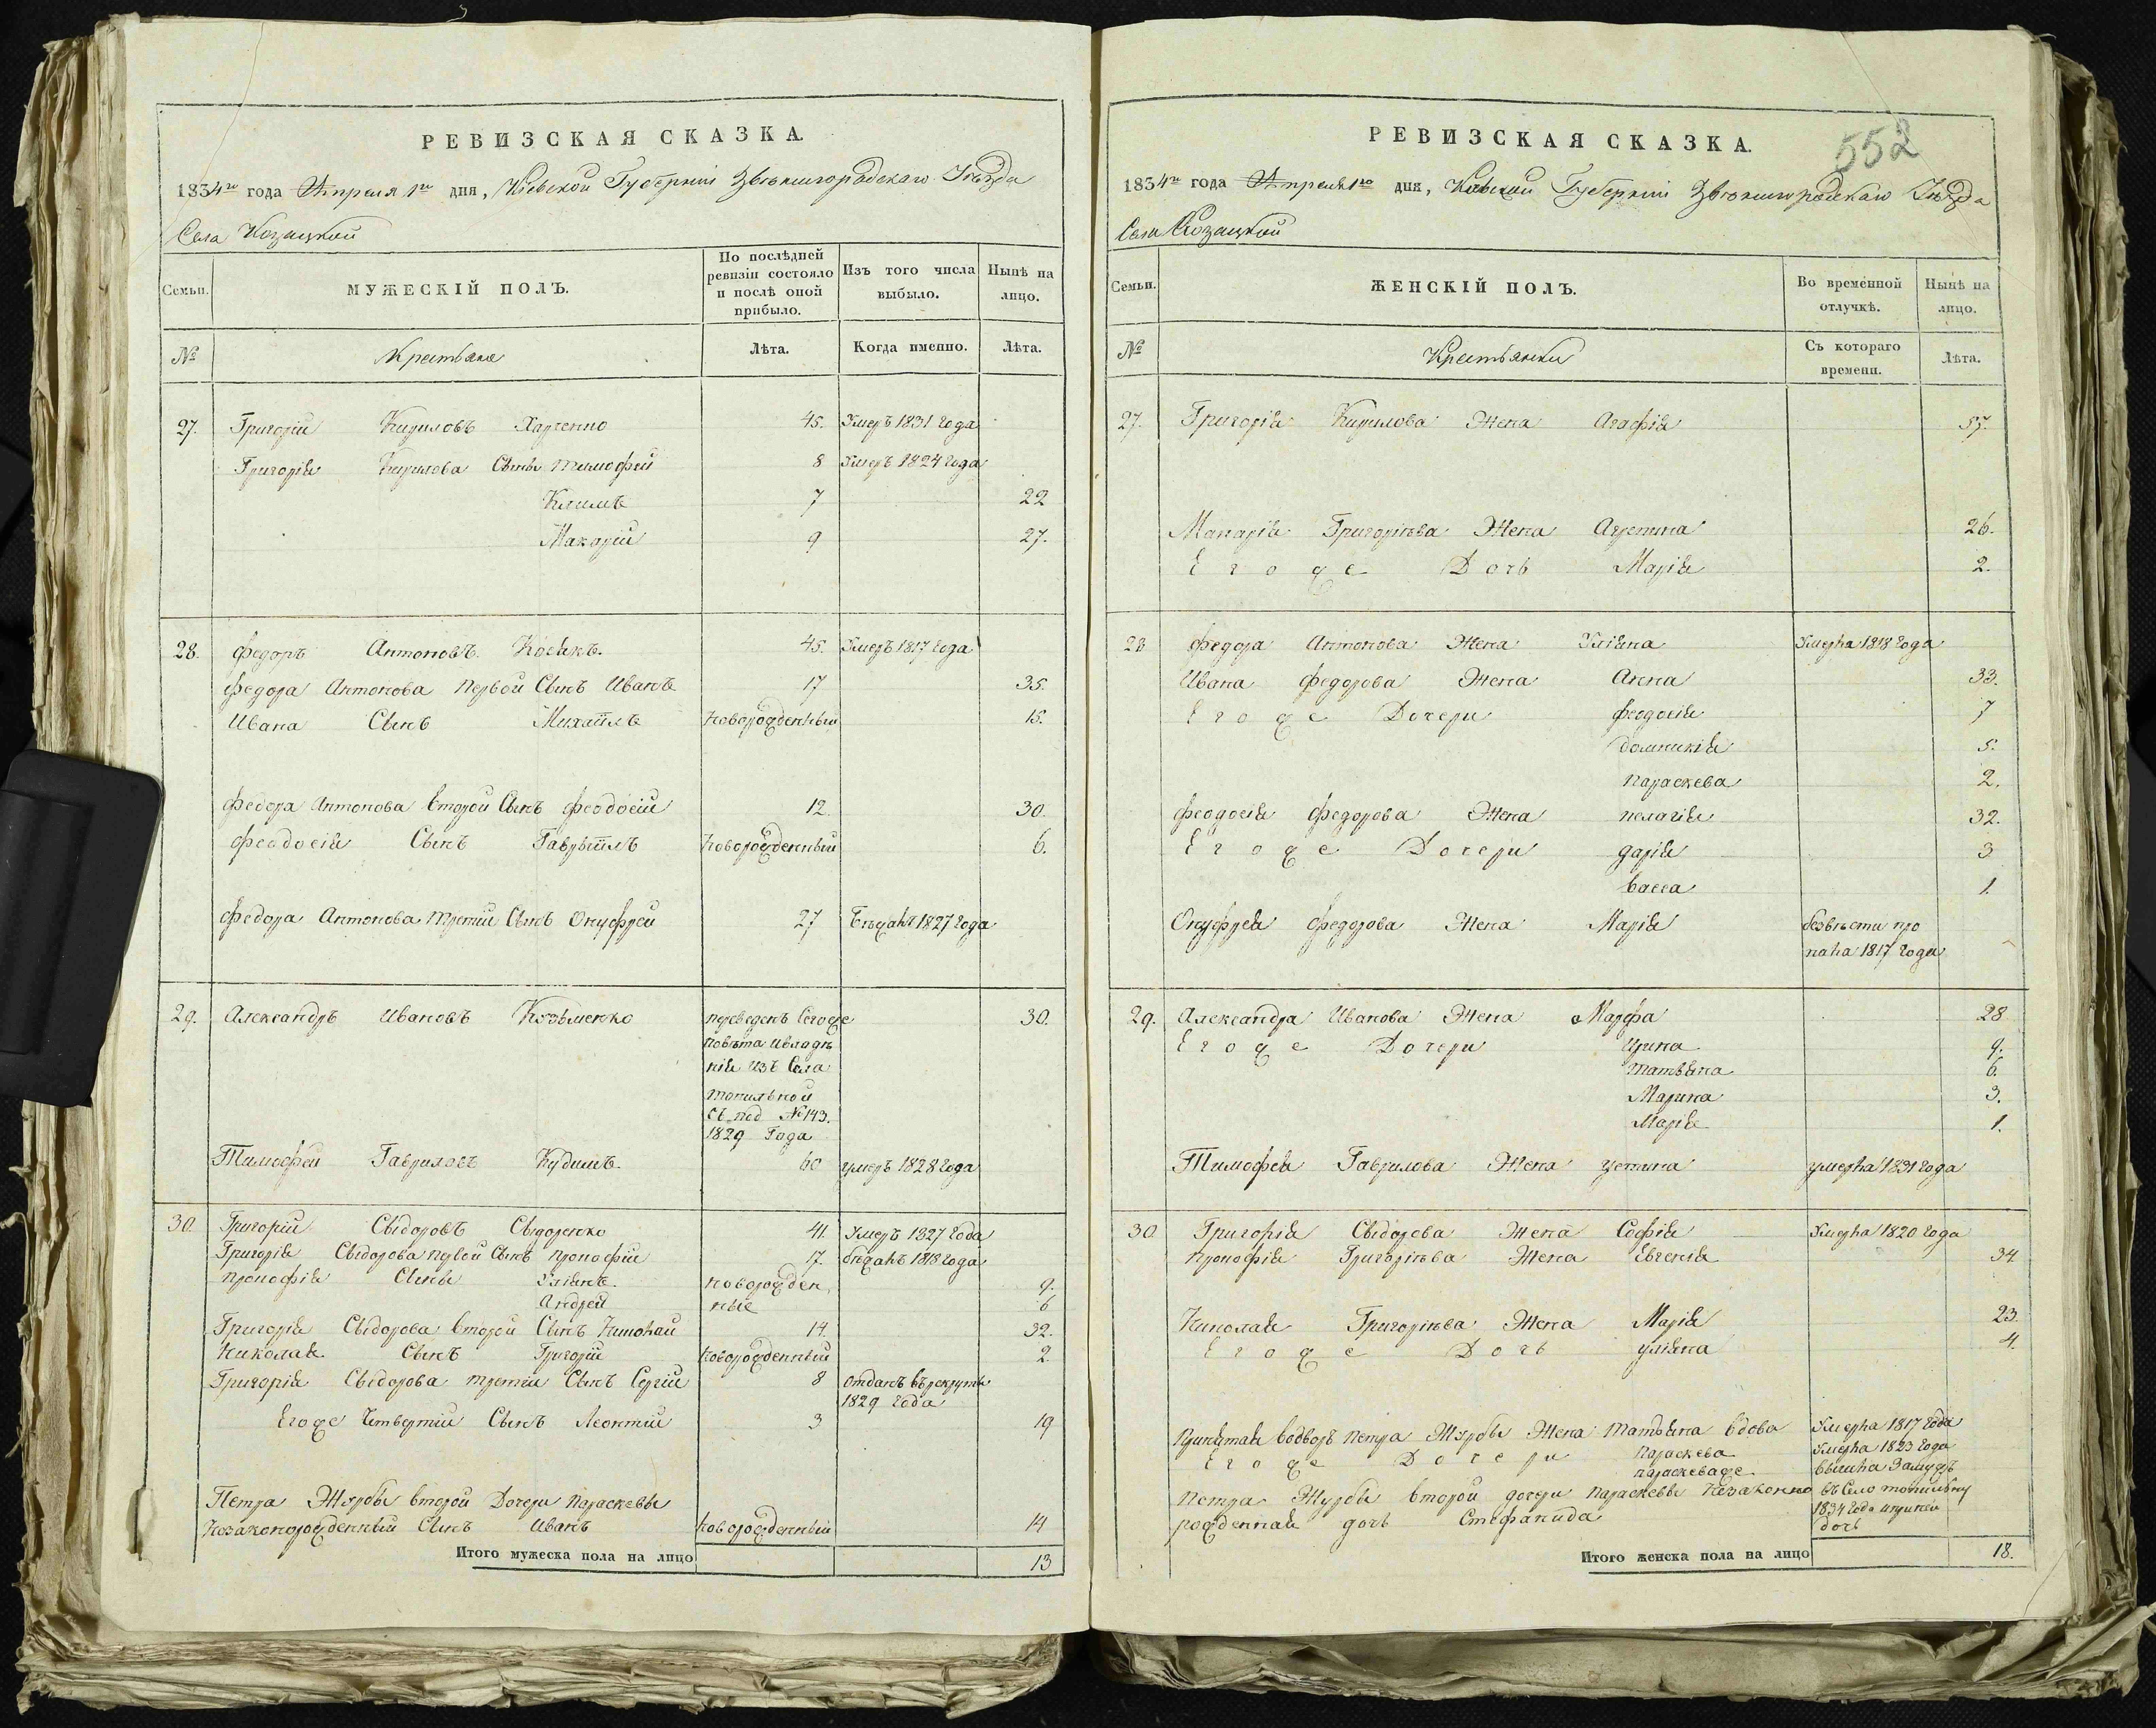 РЕВИЗСКАЯ СКАЗКА.
1834го года Апреля 1го дня, Кіевской Губерніи Звенигородскаго Уѣзда
Села Козацкой
Семьи.
МУЖЕСКІЙ ПОЛЪ.
По послѣдней ревизіи состояло и послѣ оной прибыло.
Изъ того числа выбыло.
Нынѣ на лицо.
№
Крестьяне
Лѣта.
Когда именно.
Лѣта.
27. Григорій Кириловъ Харченко 45. Умеръ 1831 года
Григорія Кирилова Сыны Тимофей 8 Умеръ 1824 года
Климъ 7 22
Макарій 9 27.
28. Федоръ Антоновъ Косякъ. 45. Умеръ 1817 года
Федора Антонова Первой Сынъ Иванъ 17 35.
Ивана Сынъ Михаилъ новорожденный 15.
Федора Антонова второй Сынъ Феодосій 12. 30.
Феодосія Сынъ Гаврыилъ новорожденный 6.
Федора Антонова третій Сынъ Онуфрей 27 Бѣжалъ 1827 года
29. Александръ Ивановъ Козьменко переведенъ Сегоже 30.
повѣта Ивладѣ
нія изъ Села
топильной
Съ под №143.
1829 Года
Тимофей Гавриловъ Кудимъ. 60 умеръ 1828 года
30. Григорій Сыдоровъ Сыдоренко 41. Умеръ 1827 года
Григорія Сыдорова первой Сынъ прокофій 17. бѣжалъ 1818 года
прокофія Сыны Уліянъ. новорожден 9.
Андрей ные 6
Григорія Сыдорова второй Сынъ Николай 14. 32.
Николая Сынъ Григорій новорожденный 2.
Григорія Сыдорова третій Сынъ Сергій 8 отданъ върекруты
1829 года
Егоже Четвертій Сынъ Леонтій 3 19
Петра Журбы второй Дочери Параскевы
Незаконорожденный Сынъ Иванъ новорожденный 14
Итого мужеска пола на лицо 13
552
РЕВИЗСКАЯ СКАЗКА.
1834го года Апреля 1го дня, Кіевской Губерніи Звенигородскаго Уѣзда
Села Козацкой
Семьи.
ЖЕНСКІЙ ПОЛЪ.
Во временной отлучкѣ.
Нынѣ на лицо.
№
Крестьянки
Съ котораго времени.
Лѣта.
27. Григорія Кирилова Жена Агафія 57.
Макарія Григорьева Жена Агрепина 26.
Егоже Дочь Марія 2.
28 Федора Антонова Жена Уліяна Умерла 1818 года
Ивана Федорова Жена Анна 33.
Егоже Дочери Феодосія 7
Домникія 5.
Параскева 2.
Феодосія Федорова Жена пелагія 32.
Егоже Дочери дарія 3
васса 1.
Онуфрея Федорова Жена Марія безвѣсти про
пала 1817 года
29. Александра Иванова Жена Марфа 28
Егоже Дочери Ирина 9.
татьяна 6.
Марина 3.
Марія 1.
Тимофея Гаврилова Жена устина умерла 1831 года
30 Григорія Сыдорова Жена Софія Умерла 1820 года
прокофія Григорьева Жена Евгенія 34
Николая Григорьева Жена Марія 23.
Егоже Дочь уліяна 4.
Принятая водворъ петра Журбы Жена татьяна вдова Умерла 1817 года
Егоже Дочери Параскева Умерла 1823 года
параскеваже вышла Замужъ
петра Журбы второй дочери параскевы Незаконно въ Село топильну
рожденная дочь Стефанида 1834 года иприней
дочь
Итого женска пола на лицо 18.